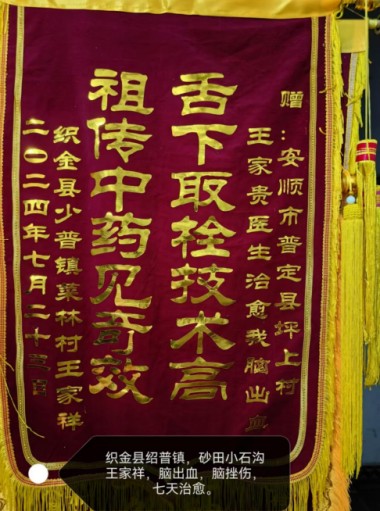 赠：安顺市普定县坪上村
王家贵医生治愈我脑出血
舌下取栓技术高
祖传中药见奇效
织金县少普镇菓林村王家祥
二〇二四年七月二十三日
织金县绍普镇，砂田小石沟
王家祥，脑出血，脑挫伤，
七天治愈。